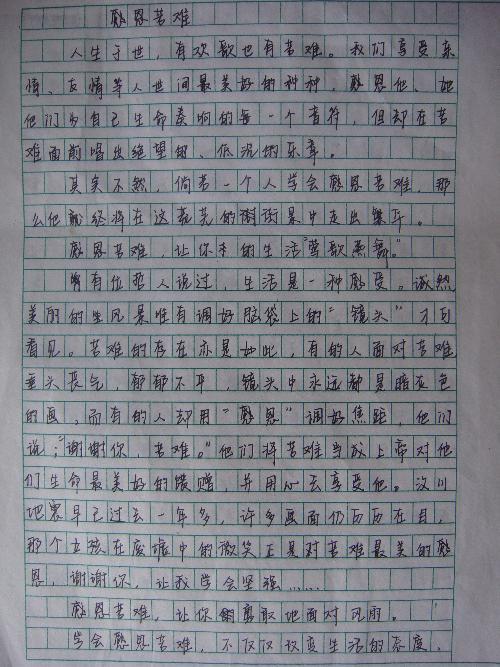 感恩苦难
人生于世，有欢歌也有苦难。我们享受亲
情、友情等人世间最美好的种种，感恩他、她
们为自己生命奏响的每一个音符，但却在苦
难面前唱出绝望的、低沉的乐章。
其实不然，倘若一个人学会感恩苦难，那
么他最终将在这荒芜的景中走出繁华。
感恩苦难，让你的生活“莺歌燕舞。”
有位哲人说过，生活是一种感受。诚然
美丽的生风景唯有调好脑袋上的“镜头”才可
看见。苦难的存在亦是如此，有的人面对苦难
垂头丧气，郁郁不平，镜头中永远都是暗灰色
的画，而有的人却用“感恩”调好焦距，他们
说：“谢谢你，苦难。”他们将苦难当成上帝对他
们生命最美好的馈赠，并用心去享受他。汶川
地震早已过去一年多，许多画面仍历历在目，
那个女孩在废墟中的微笑正是对苦难最美的感
恩，谢谢你，让我学会坚强……
感恩苦难，让你勇敢地面对风雨。
学会感恩苦难，不仅仅改变生活的态度，